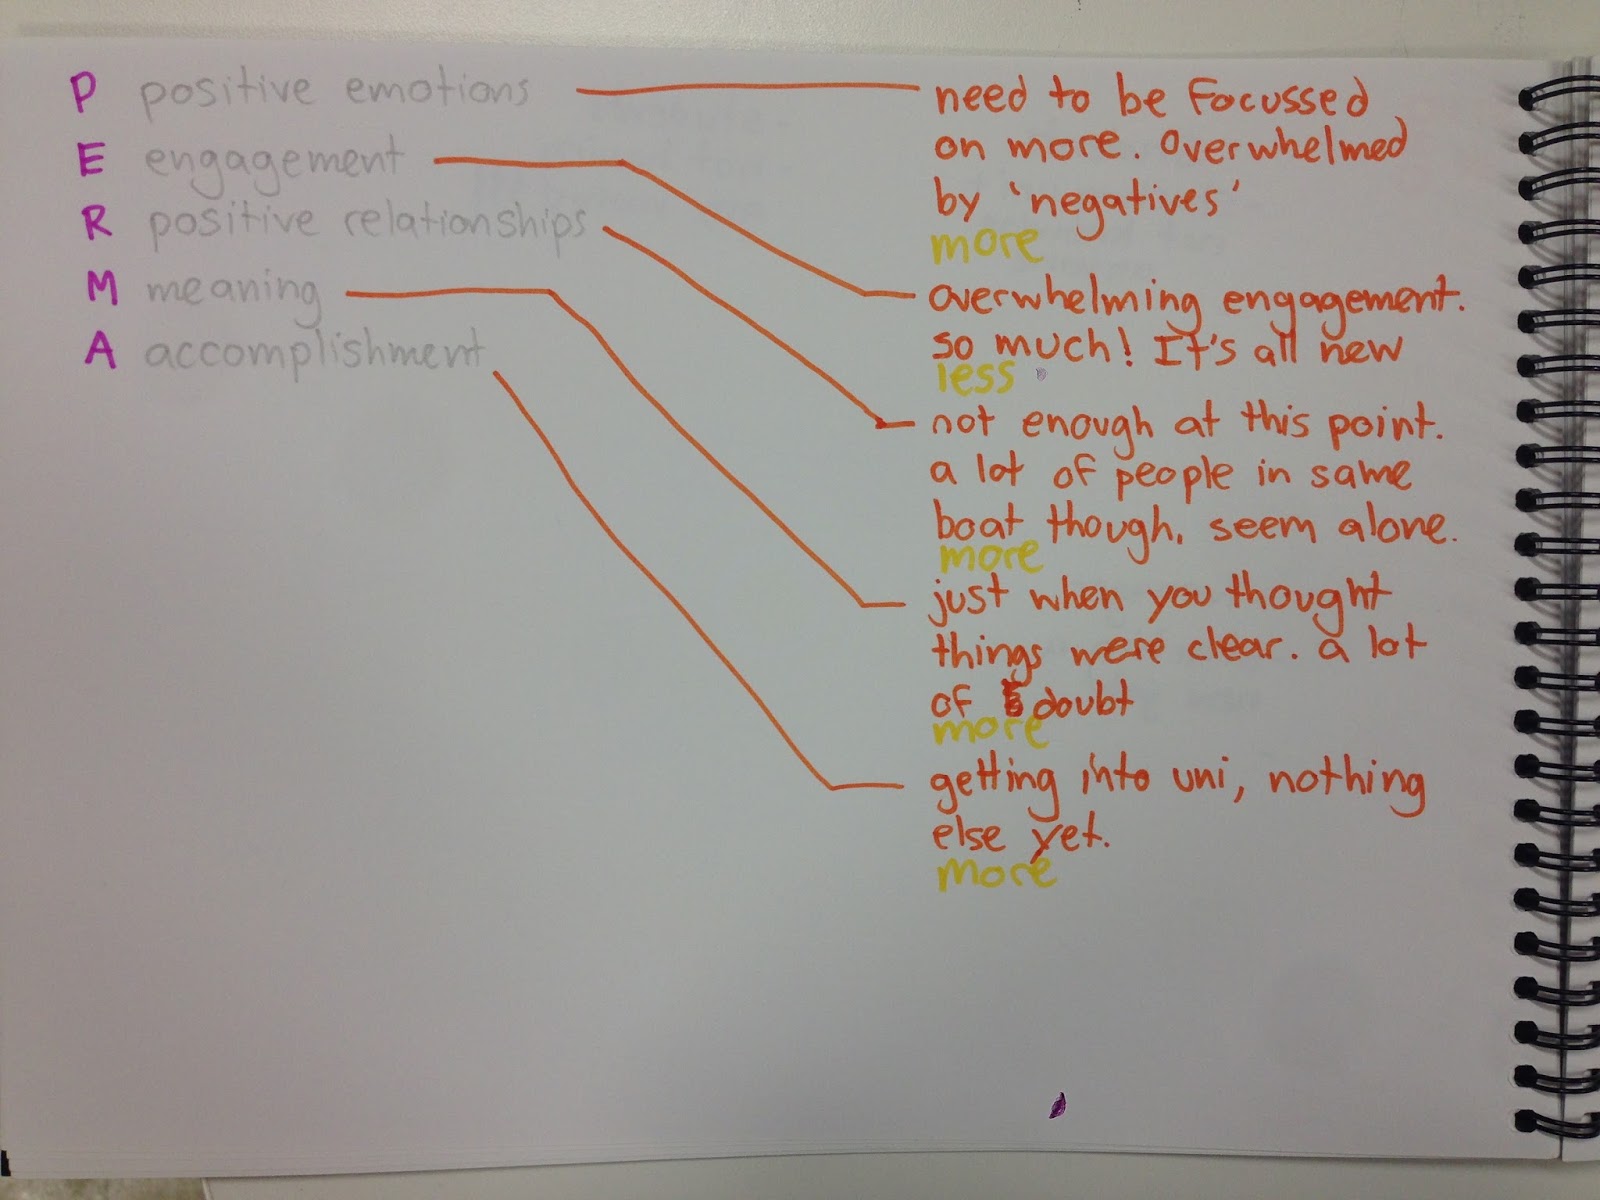 P positive emotions
E engagement
R positive relationships
M meaning
A accomplishment
need to be focussed
on more. Overwhelmed
by 'negatives'
more
overwhelming engagement.
so much! It's all new
less
not enough at this point.
a lot of people in same
boat though, seem alone.
more
just when you thought
things were clear. a lot
of doubt
more
getting into uni, nothing
else yet.
more